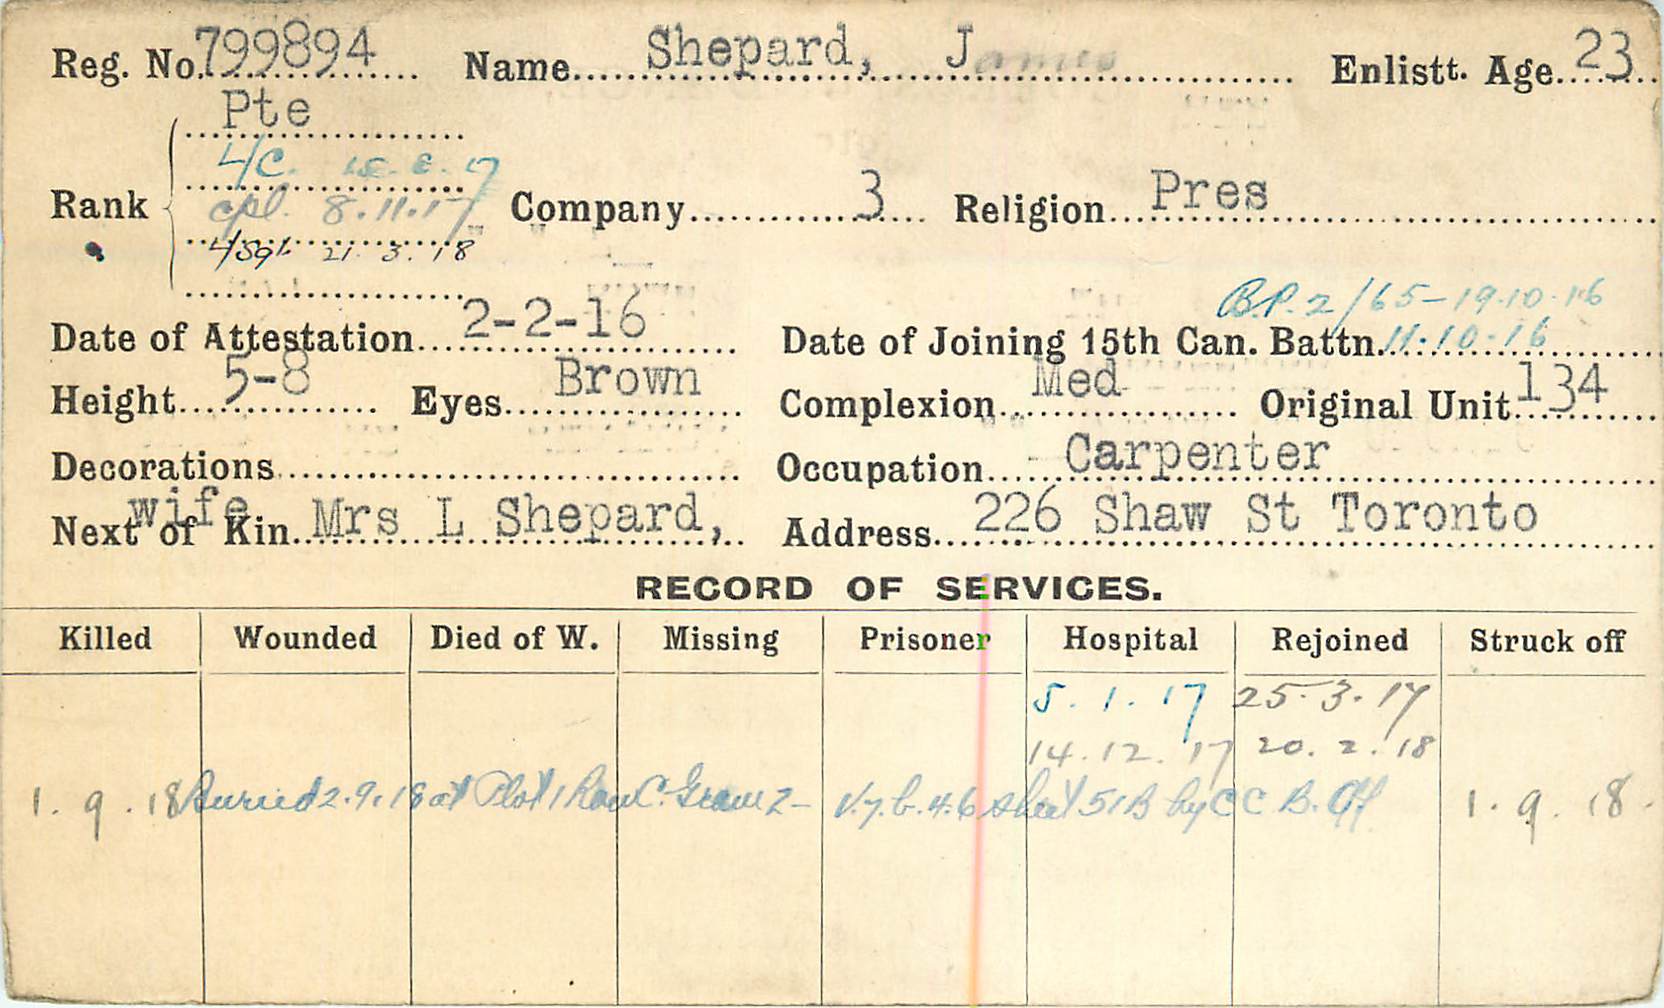 Reg. No. 799894 Name Shepard, James Enlistt. Age 23
Pte
L/C. 15.8.17
Rank cpl. 8.11.17 Company 3 Religion Pres
L/Sgt. 21.3.18
B.P.2/65-19.10.16
Date of Attestation 2-2-16 Date of Joining 15th Can. Battn. 11.10.16
Height 5-8 Eyes Brown Complexion Med Original Unit 134
Decorations Occupation Carpenter
wife
Next of Kin Mrs L Shepard, Address 226 Shaw St Toronto
RECORD OF SERVICES.
Killed Wounded Died of W. Missing Prisoner Hospital Rejoined Struck off
5.1.17 25.3.17
14.12.17 20.2.18
1.9.18 Buried 2.9.18 at Plot 1 Row C. Grave 2- Sheet 51B by C C B. Off 1.9.18.